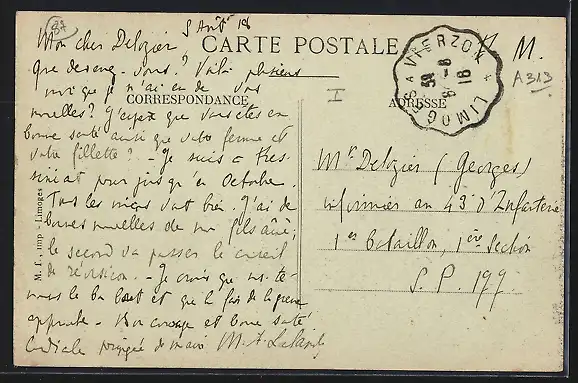 87
5 Août 18
CARTE POSTALE
F. M.
A313
VIERZON A LIMOGES
8-8
18
CORRESPONDANCE
ADRESSE
I
M. L., imp - Limoges
Mon cher Delozier,
Que devenez-vous? Voilà plusieurs
mois que je n'ai eu de vos
nouvelles? J'espère que vous êtes en
bonne santé ainsi que votre femme et
votre fillette? - Je suis à Tres-
siniat pour jusqu'en Octobre.
Tous les miens vont bien. J'ai de
bonnes nouvelles de mon fils aîné;
le second va passer le conseil
de révision. - Je crois que ns te-
nons le bon bout et que la fin de la guerre
approche - Bon courage et bonne santé
Cordiale poignée de main M. A.
Mr Delozier (Georges)
infirmier au 43e d'Infanterie
1er bataillon, 1ère Section
S. P. 199.